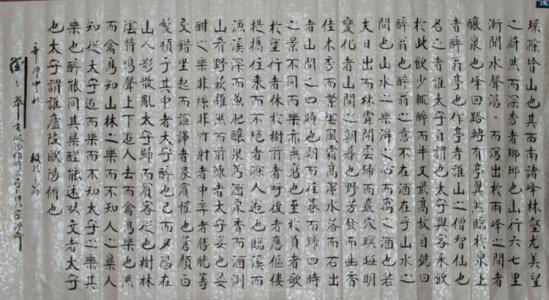 環滁皆山也其西南諸峰林壑尤美望
之蔚然而深秀者瑯琊也山行六七里
漸聞水聲潺潺而瀉出於兩峰之間者
釀泉也峰回路轉有亭翼然臨於泉上
者醉翁亭也作亭者誰山之僧智仙也
名之者誰太守自謂也太守與客來飲
於此飲少輒醉而年又最高故自號曰
醉翁也醉翁之意不在酒在乎山水之
間也山水之樂得之心而寓之酒也若
夫日出而林霏開雲歸而巖穴暝晦明
變化者山間之朝暮也野芳發而幽香
佳木秀而繁陰風霜高潔水落而石出
者山間之四時也朝而往暮而歸四時
之景不同而樂亦無窮也至於負者歌
於塗行者休於樹前者呼後者應傴僂
提攜往來而不絕者滁人遊也臨溪而
漁溪深而魚肥釀泉為酒泉香而酒洌
山肴野蔌雜然而前陳者太守宴也宴
酣之樂非絲非竹射者中弈者勝觥籌
交錯坐起而諠譁者眾賓懽也蒼顏白
髮頹乎其中者太守醉也已而夕陽在
山人影散亂太守歸而賓客從也樹林
陰翳鳴聲上下遊人去而禽鳥樂也然
而禽鳥知山林之樂而不知人之樂人
知從太守遊而樂而不知太守之樂其
樂也醉能同其樂醒能述以文者太守
也太守謂誰廬陵歐陽修也